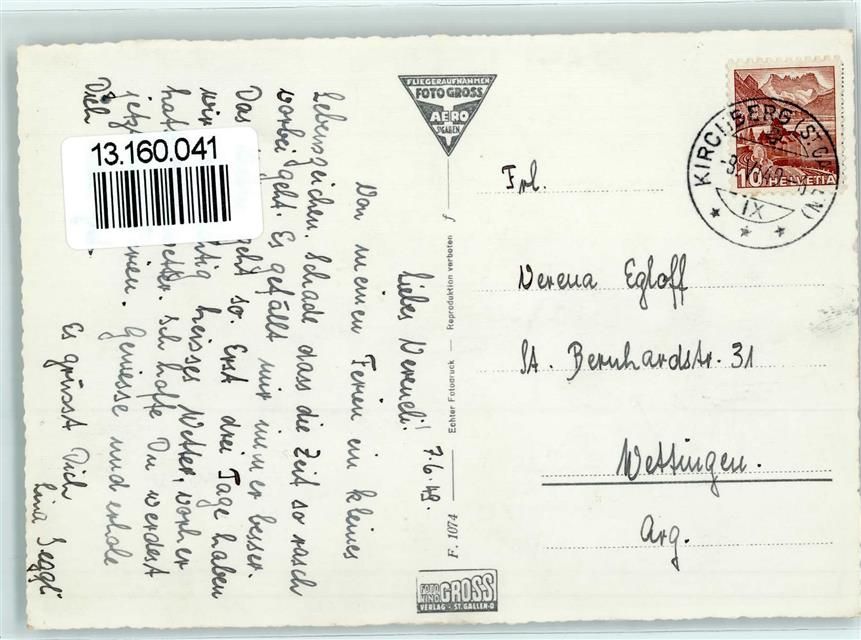 13.160.041
FLIEGERAUFNAHMEN
FOTO GROSS
AERO
ST.GALLEN
Frl.
Verena Egloff
St. Bernhardstr. 31
Wettingen.
Arg.
KIRCHBERG (ST. GALLEN)
IX
10 HELVETIA
7.6.49.
Liebes Vereneli!
Von meinen Ferien ein kleines
Lebenszeichen. Schade dass die Zeit so rasch
vorbei geht. Es gefällt mir immer besser.
Das geht so. Erst drei Tage haben
wir heisses Wetter, vorher
hat Ich hoffe Du werdest
jetzt Geniesse und erhole
Dich
Es grüsst Dich
Lina
F. 1074 Echter Fotodruck — Reproduktion verboten f
FOTO KINO GROSS
VERLAG - ST. GALLEN-O